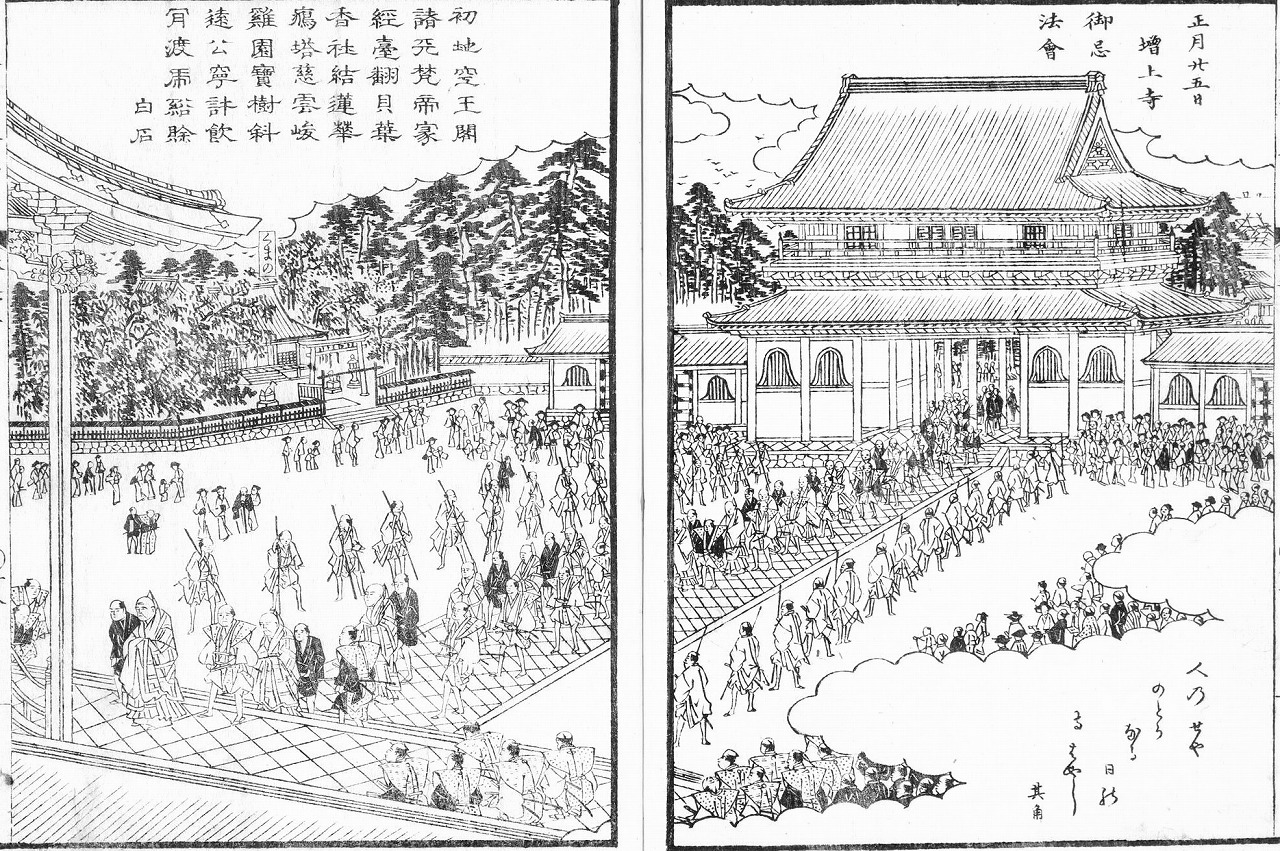 正月廿五日
増上寺
御忌
法會
人乃世や
のとか
なる
日の
寺はやし
其角
初地空王開
諸天梵帝家
經臺翻貝葉
香社結蓮華
鴈塔慈雲峻
雞園寶樹斜
遠公寧許飲
肎渡虎谿賖
白石
くまの